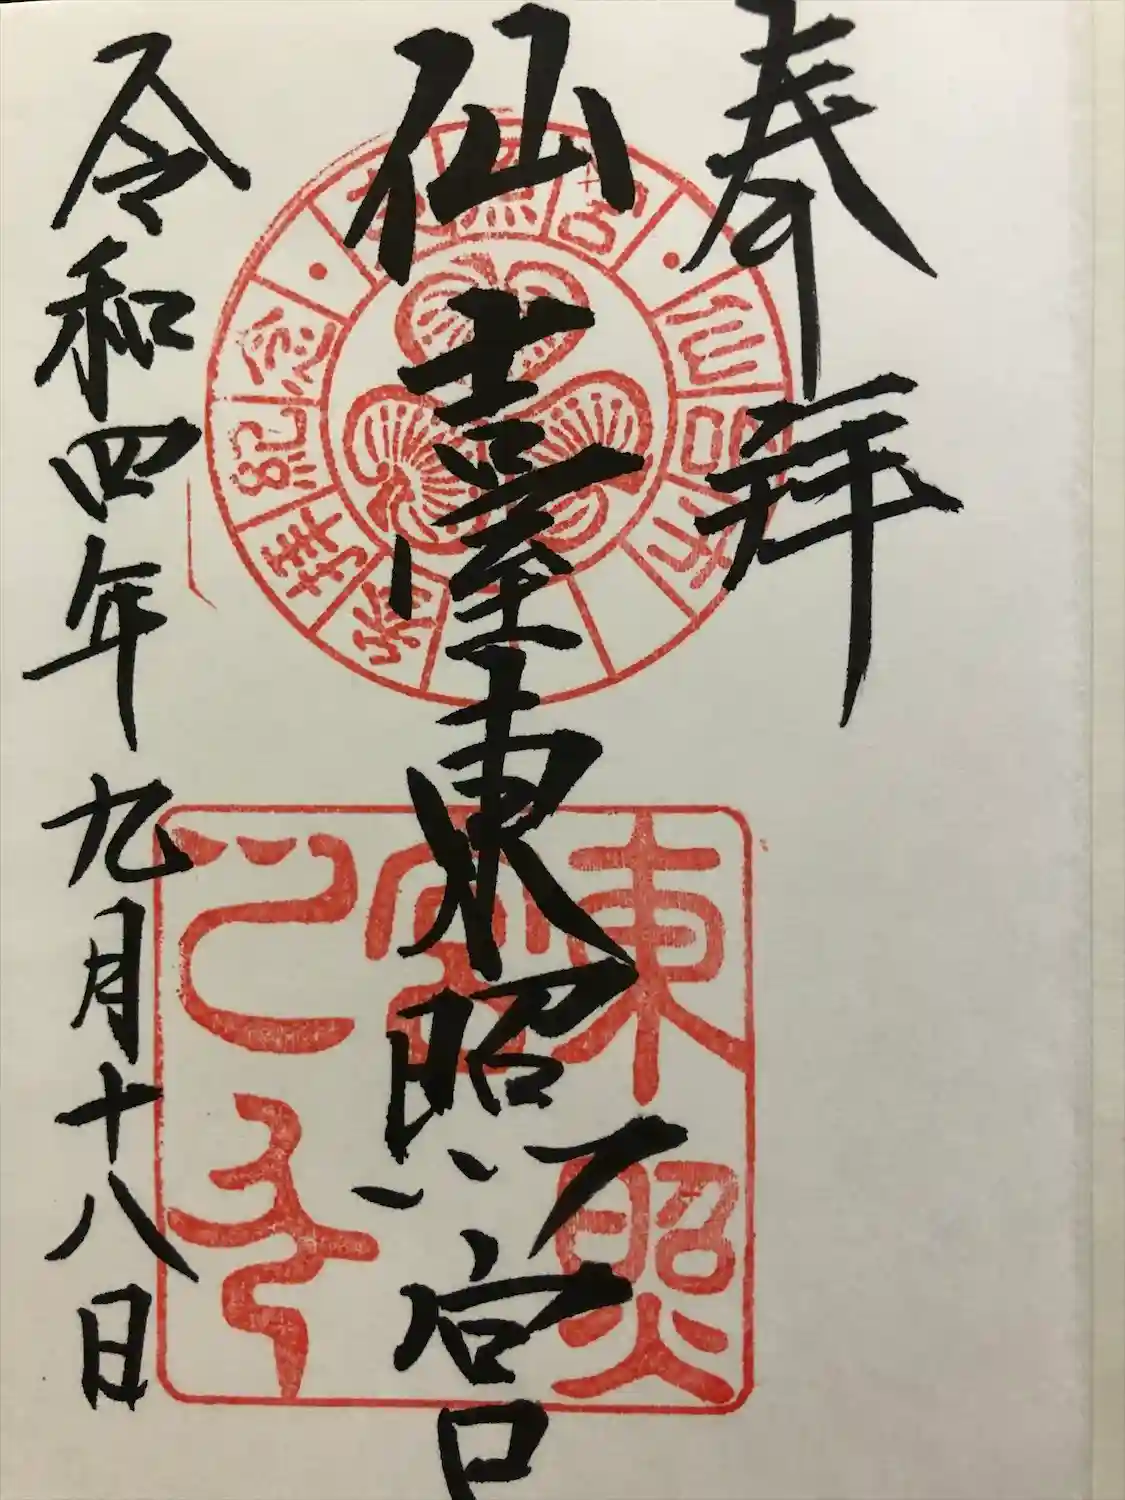 奉拝
仙臺東照宮
令和四年九月十八日
東照宮
参拝記念
東照